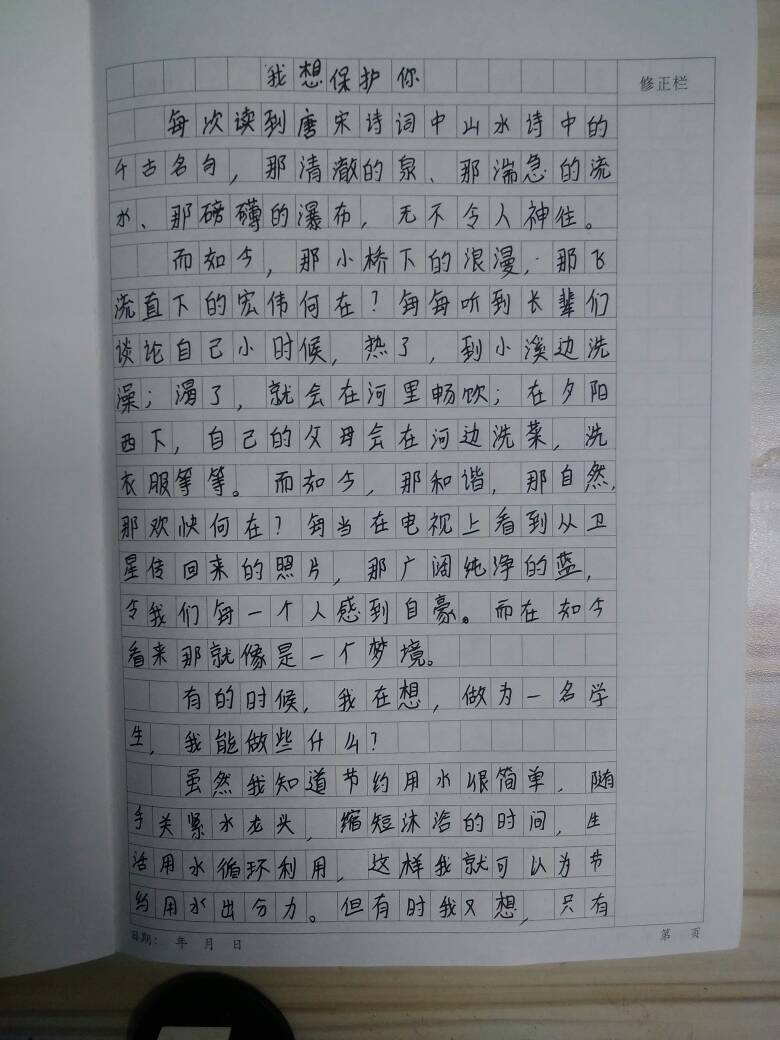 我想保护你
修正栏
每次读到唐宋诗词中山水诗中的
千古名句，那清澈的泉、那湍急的流
水、那磅礴的瀑布，无不令人神往。
而如今，那小桥下的浪漫，那飞
流直下的宏伟何在？每每听到长辈们
谈论自己小时候，热了，到小溪边洗
澡；渴了，就会在河里畅饮；在夕阳
西下，自己的父母会在河边洗菜，洗
衣服等等。而如今，那和谐，那自然，
那欢快何在？每当在电视上看到从卫
星传回来的照片，那广阔纯净的蓝，
令我们每一个人感到自豪。而在如今
看来那就像是一个梦境。
有的时候，我在想，做为一名学
生，我能做些什么？
虽然我知道节约用水很简单，随
手关紧水龙头，缩短沐浴的时间，生
活用水循环利用，这样我就可以为节
约用水出分力。但有时我又想，只有
日期： 年 月 日 第 页